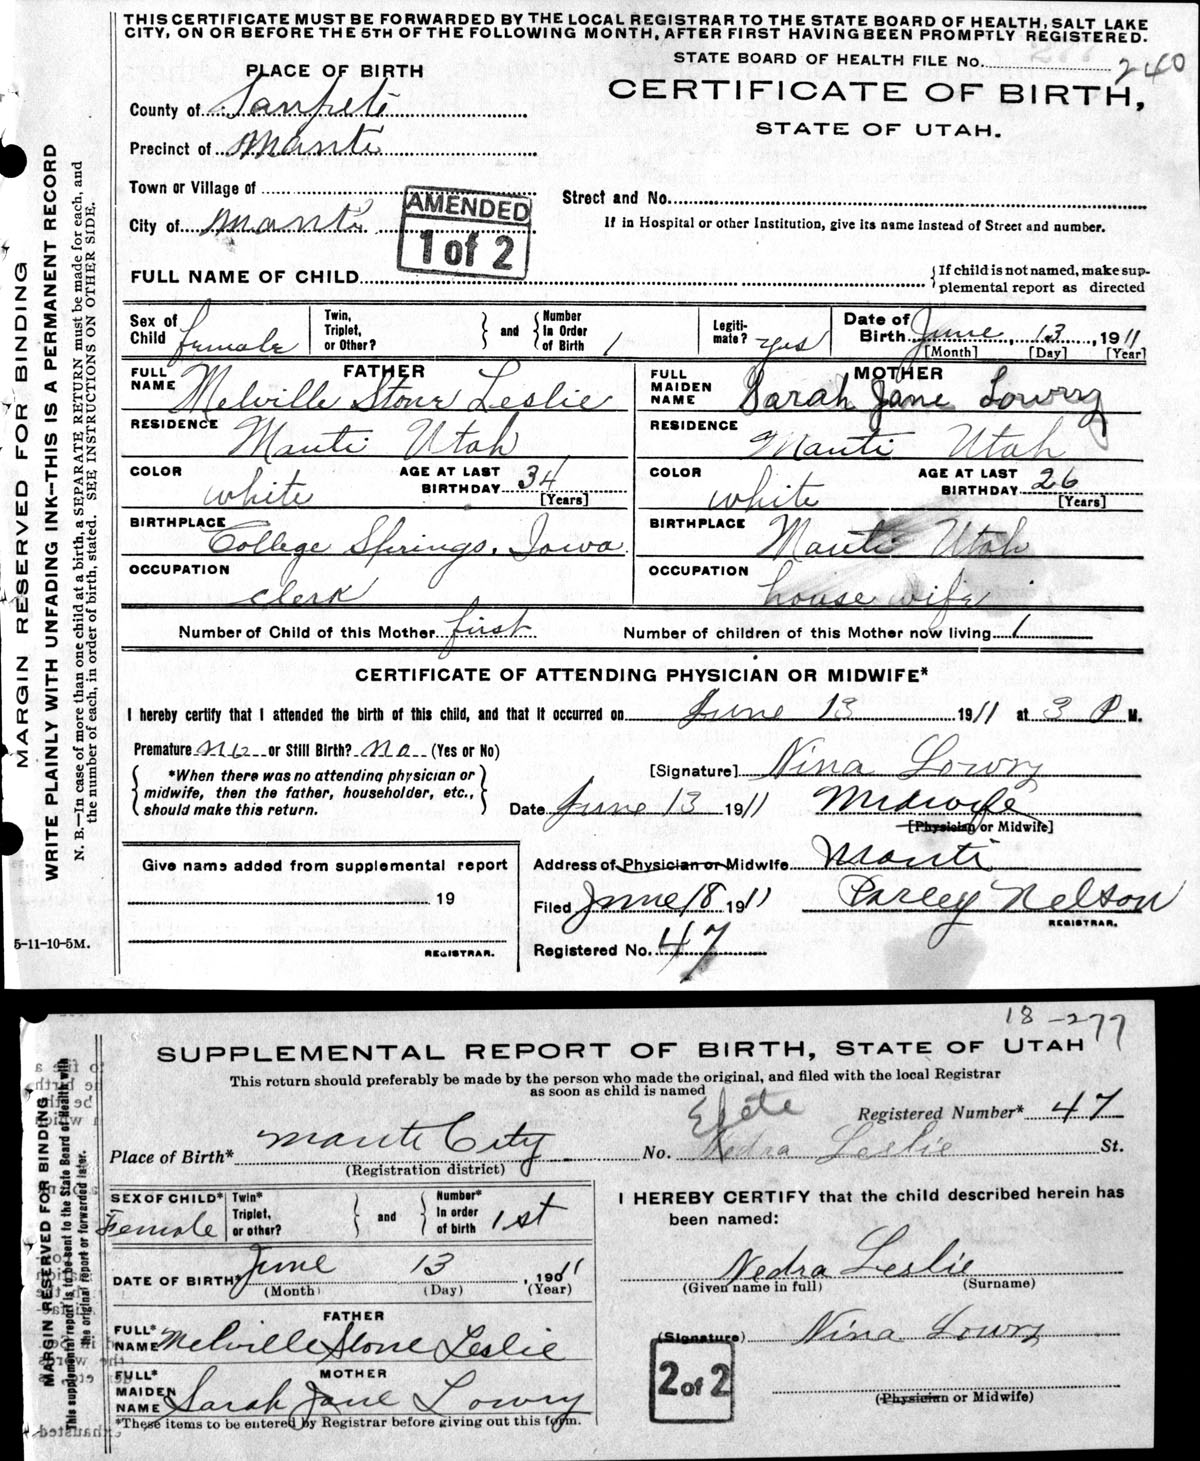 THIS CERTIFICATE MUST BE FORWARDED BY THE LOCAL REGISTRAR TO THE STATE BOARD OF HEALTH, SALT LAKE
CITY, ON OR BEFORE THE 5TH OF THE FOLLOWING MONTH, AFTER FIRST HAVING BEEN PROMPTLY REGISTERED.
STATE BOARD OF HEALTH FILE No. 240
PLACE OF BIRTH
CERTIFICATE OF BIRTH,
STATE OF UTAH.
County of Sanpete
Precinct of Manti
Town or Village of
Street and No.
City of Manti
If in Hospital or other Institution, give its name instead of Street and number.
AMENDED
1 of 2
FULL NAME OF CHILD
{If child is not named, make sup-
plemental report as directed
Sex of Child female
Twin, Triplet, or Other?
and
Number In Order of Birth 1
Legiti-mate? yes
Date of Birth June 13, 1911
[Month] [Day] [Year]
FATHER
FULL NAME Melville Stone Leslie
MOTHER
FULL MAIDEN NAME Sarah Jane Lowry
RESIDENCE Manti Utah
RESIDENCE Manti Utah
COLOR white
AGE AT LAST BIRTHDAY 34 [Years]
COLOR white
AGE AT LAST BIRTHDAY 26 [Years]
BIRTHPLACE College Springs, Iowa
BIRTHPLACE Manti Utah
OCCUPATION clerk
OCCUPATION house wife
Number of Child of this Mother first
Number of children of this Mother now living 1
CERTIFICATE OF ATTENDING PHYSICIAN OR MIDWIFE*
I hereby certify that I attended the birth of this child, and that it occurred on June 13 1911 at 3 P M.
Premature No or Still Birth? No (Yes or No)
*When there was no attending physician or
midwife, then the father, householder, etc.,
should make this return.
[Signature] Nina Lowry
Date June 13 1911 Midwife
[Physician or Midwife]
Give name added from supplemental report
19
REGISTRAR.
Address of Physician or Midwife Manti
Filed June 18 1911 Parley Nelson
REGISTRAR.
Registered No. 47
5-11-10-5M.
MARGIN RESERVED FOR BINDING
WRITE PLAINLY WITH UNFADING INK—THIS IS A PERMANENT RECORD
N. B.—In case of more than one child at a birth, a SEPARATE RETURN must be made for each, and
the number of each, in order of birth, stated. SEE INSTRUCTIONS ON OTHER SIDE.
18-277
SUPPLEMENTAL REPORT OF BIRTH, STATE OF UTAH
This return should preferably be made by the person who made the original, and filed with the local Registrar
as soon as child is named
Registered Number* 47
Place of Birth* Manti City
(Registration district)
No. Nedra Leslie St.
SEX OF CHILD* Female
Twin* Triplet, or other?
and
Number* In order of birth 1st
DATE OF BIRTH* June 13, 1911
(Month) (Day) (Year)
FATHER
FULL* NAME Melville Stone Leslie
MOTHER
FULL* MAIDEN NAME Sarah Jane Lowry
*These items to be entered by Registrar before giving out this form.
I HEREBY CERTIFY that the child described herein has
been named:
Nedra Leslie
(Given name in full) (Surname)
(Signature) Nina Lowry
2 of 2
(Physician or Midwife)
MARGIN RESERVED FOR BINDING
This supplemental report is to be sent to the State Board of Health with
the original report or forwarded later.